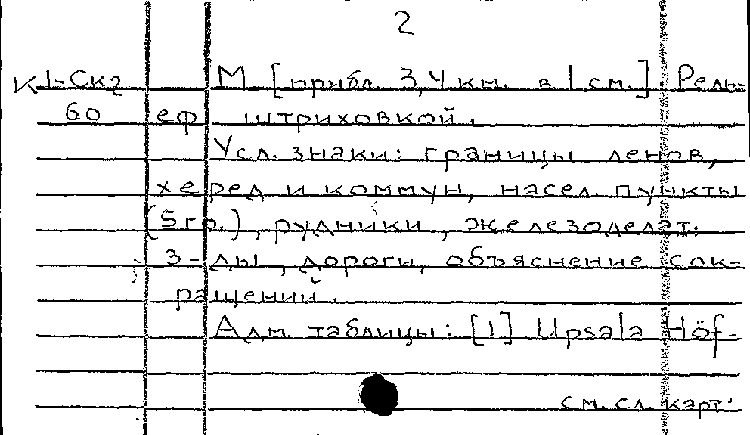 2
К1-Ск2 М [прибл. 3,4 км. в 1 см.] Рель-
60 еф штриховкой.
Усл. знаки: границы ленов,
херед и коммун, насел. пункты
(5 гр.), рудники, железоделат.
з-ды, дороги, объяснение сок-
ращений.
Адм. таблицы: [1] Upsala Höf-
см. сл. карт.